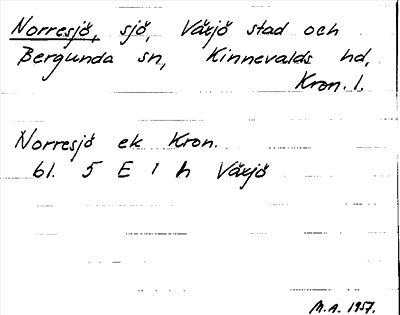 Norresjö, sjö, Växjö stad och
Bergunda sn, Kinnevalds hd,
Kron. l.
Norresjö ek Kron.
bl. 5 E 1 h Växjö
M.A. 1957.